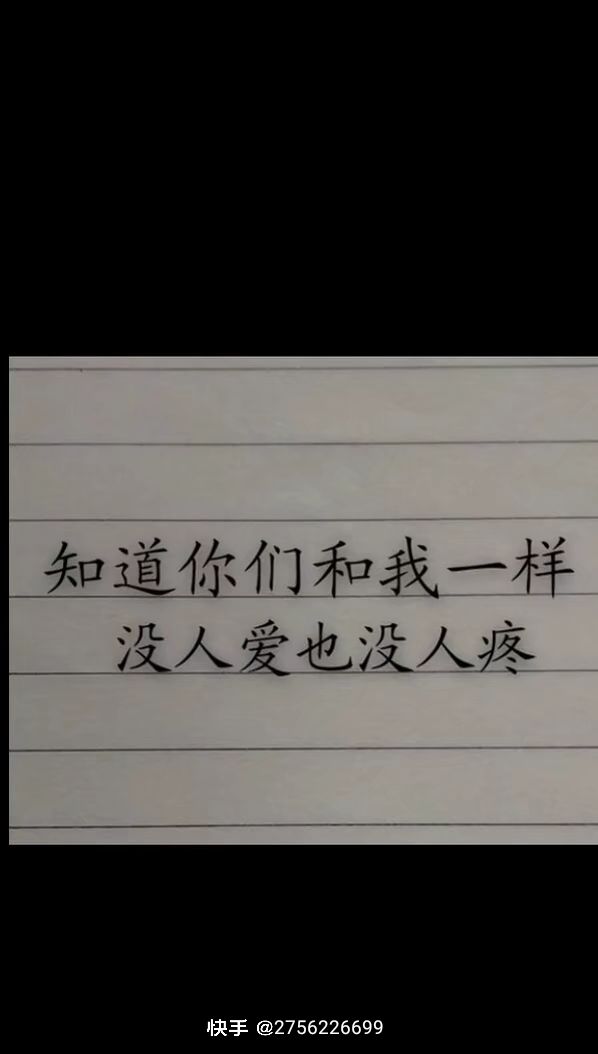 知道你们和我一样
没人爱也没人疼
快手 @2756226699